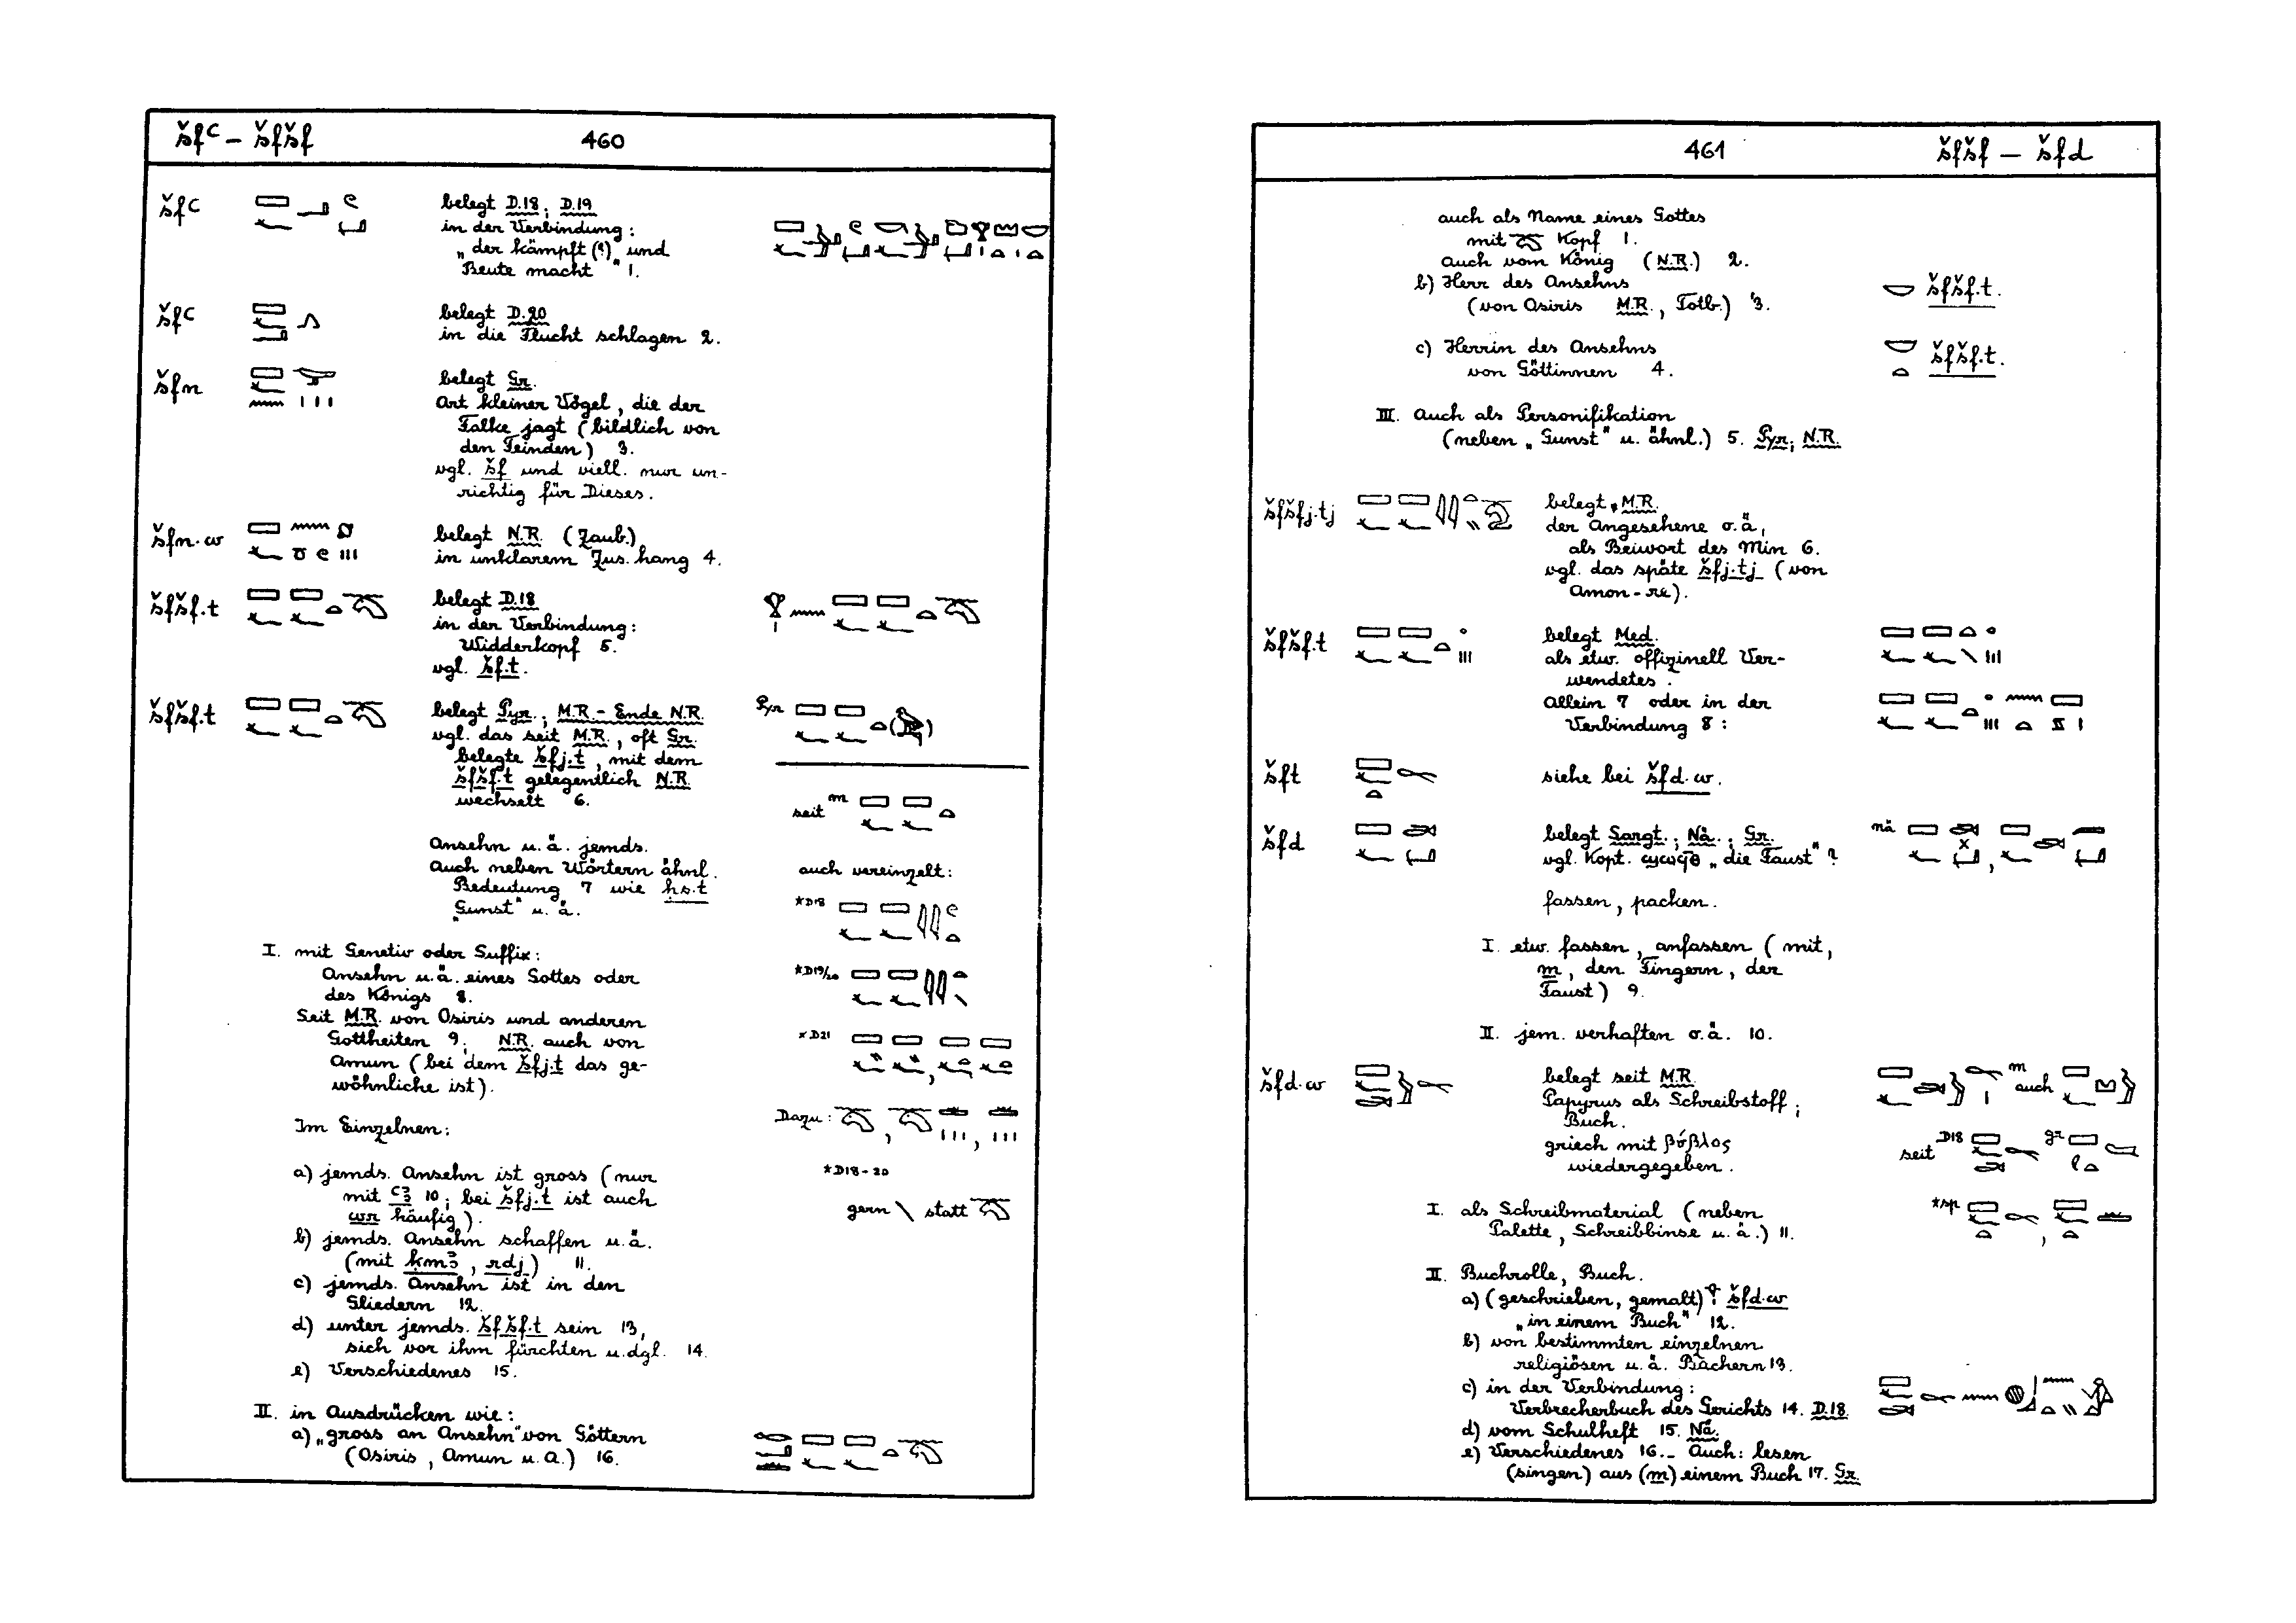 šfꜥ – šfšf 460
šfꜥ belegt D.18; D.19
in der Verbindung:
„der kämpft (?) und
Beute macht" 1.
šfꜥ belegt D.20
in die Flucht schlagen 2.
šfn belegt Gr.
Art kleiner Vögel, die der
Falke jagt (bildlich von
den Feinden) 3.
vgl. šf und viell. nur un-
richtig für Dieses.
šfn.w belegt N.R. (Zaub.)
in unklarem Zus.hang 4.
šfšf.t belegt D.18
in der Verbindung:
Widderkopf 5.
vgl. šf.t.
šfšf.t belegt Pyr.; M.R.– Ende N.R. Pyr
vgl. das seit M.R., oft Gr.
belegte šfj.t, mit dem
šfšf.t gelegentlich N.R.
wechselt 6.
seit m
Ansehn u.ä. jemds.
Auch neben Wörtern ähnl. auch vereinzelt:
Bedeutung 7 wie ḥs.t
„Gunst" u.ä. *D18
I. mit Genetiv oder Suffix:
Ansehn u.ä. eines Gottes oder *D19/20
des Königs 8.
Seit M.R. von Osiris und anderen
Gottheiten 9; N.R. auch von *D21
Amun (bei dem šfj.t das ge-
wöhnliche ist).
Im Einzelnen: Dazu: , ,
a) jemds. Ansehn ist gross (nur *D18–20
mit ꜥꜣ 10; bei šfj.t ist auch
wr häufig). gern \ statt
b) jemds. Ansehn schaffen u.ä.
(mit ḳmꜣ, rdj) 11.
c) jemds. Ansehn ist in den
Gliedern 12.
d) unter jemds. šfšf.t sein 13,
sich vor ihm fürchten u.dgl. 14.
e) Verschiedenes 15.
II. in Ausdrücken wie:
a) „gross an Ansehn" von Göttern
(Osiris, Amun u.a.) 16.
461 šfšf – šfd
auch als Name eines Gottes
mit Kopf 1.
auch vom König (N.R.) 2.
b) Herr des Ansehns šfšf.t.
(von Osiris M.R., Totb.) 3.
c) Herrin des Ansehns šfšf.t.
von Göttinnen 4.
III. Auch als Personifikation
(neben „Gunst" u. ähnl.) 5. Pyr; N.R.
šfšfj.tj belegt M.R.
der Angesehene o.ä.,
als Beiwort des Min 6.
vgl. das späte šfj.tj (von
Amon-re).
šfšf.t belegt Med.
als etw. offizinell Ver-
wendetes.
Allein 7 oder in der
Verbindung 8:
šft siehe bei šfd.w.
šfd belegt Sargt.; Nä.; Gr. nä
vgl. Kopt. ϣⲱϥⲃ̄ „die Faust"?
fassen, packen.
I. etw. fassen, anfassen (mit,
m, den Fingern, der
Faust) 9.
II. jem. verhaften o.ä. 10.
šfd.w belegt seit M.R. m auch
Papyrus als Schreibstoff;
Buch.
griech mit βύβλος seit D18 gr
wiedergegeben.
I. als Schreibmaterial (neben *sp
Palette, Schreibbinse u.ä.) 11.
II. Buchrolle, Buch.
a) (geschrieben, gemalt) šfd.w
„in einem Buch" 12.
b) von bestimmten einzelnen
religiösen u.ä. Büchern 13.
c) in der Verbindung:
Verbrecherbuch des Gerichts 14. D.18.
d) vom Schulheft 15. Nä.
e) Verschiedenes 16.– Auch: lesen
(singen) aus (m) einem Buch 17. Gr.